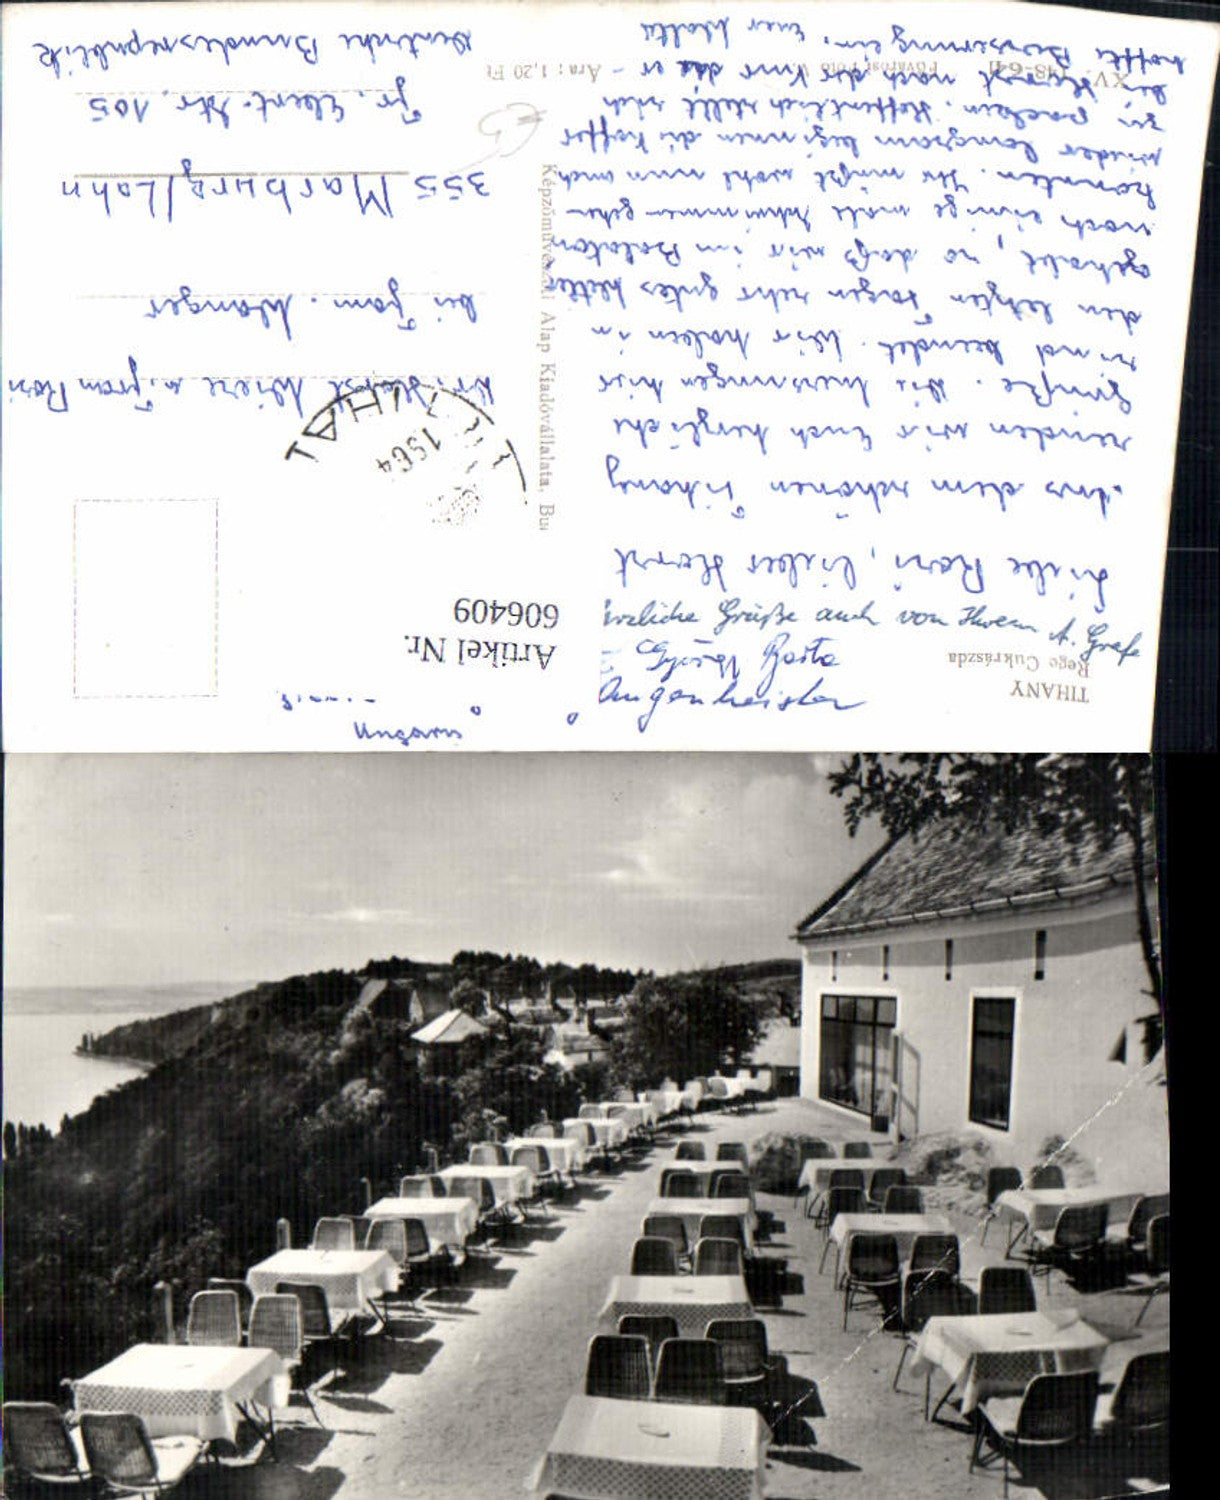 TIHANY
Rege Cukrászda
Liebe Rosi, lieber Horst
Aus dem schönen Tihany
senden wir Euch herzliche
Grüße. Die hier
sind beendet. Wir haben in
den letzten Tagen sehr gutes Wetter
gehabt, so daß wir im Balaton
noch einige male schwimmen gehen
konnten. Ihr müßt wohl nun auch
wieder langsam beginnen die Koffer
zu packen. Hoffentlich stellt sich
bei Horst nach der Kur die er
hoffte Besserung ein. Euer Walter
Herzliche Grüße auch von Ihrem A. Grafe
Angenheister
Artikel Nr.
606409
TIHANY
1964
Képzőművészeti Alap Kiadóvállalata, Bu
Horst u. Frau Rosi
bei Fam. Wanger
355 Marburg/Lahn
Fr. Ebert-Str. 105
Deutsche Bundesrepublik
XV
Fővárosi Fotó
Ára: 1,20 Ft